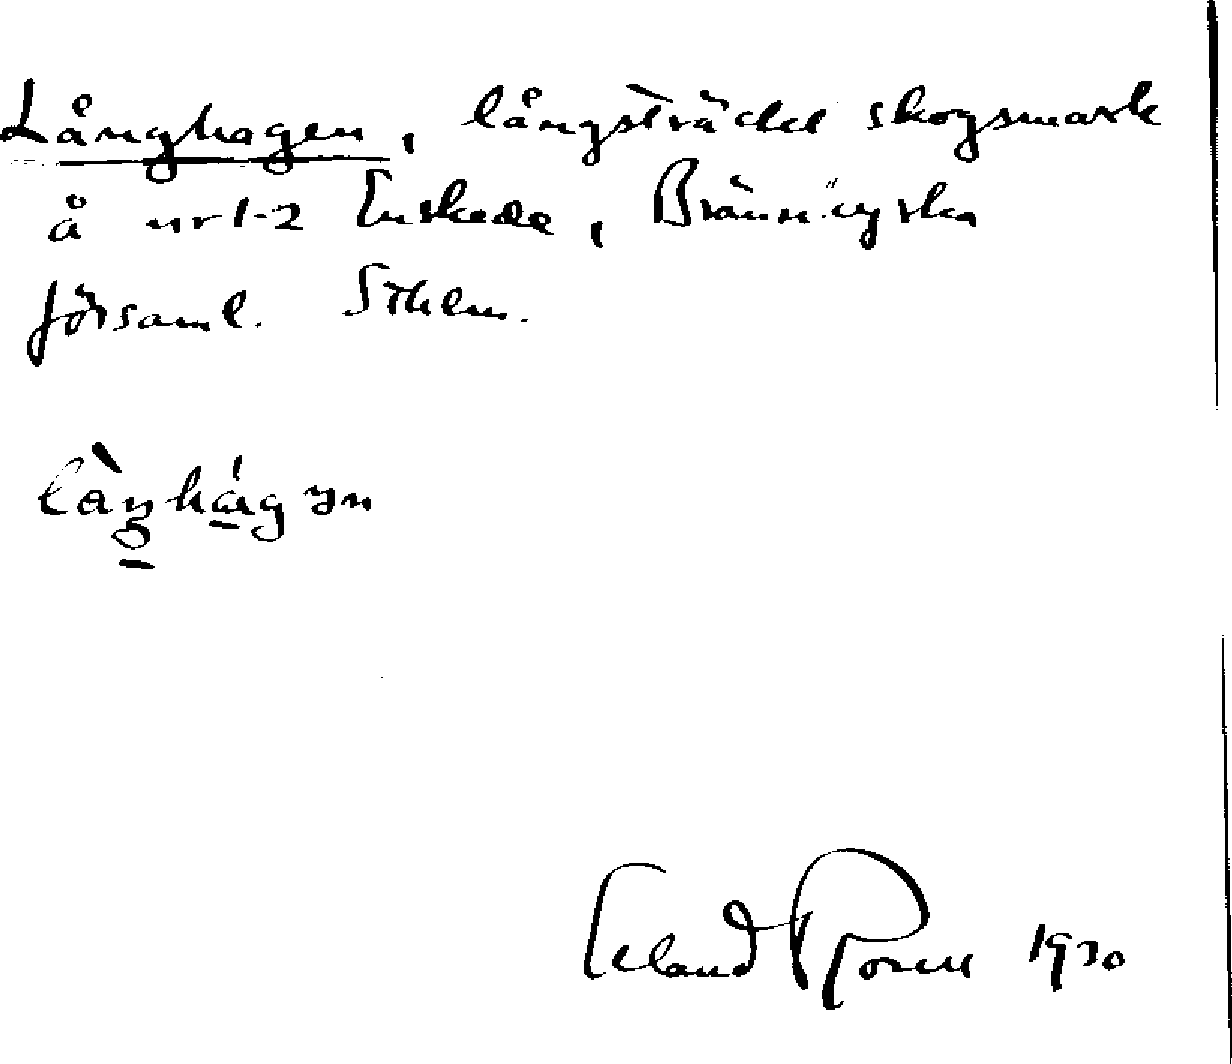 Långhagen, långsträckt skogsmark
å nr 1-2 Enskede, Brännkyrka
församl. Sthlm.
Erland Rosell 1930